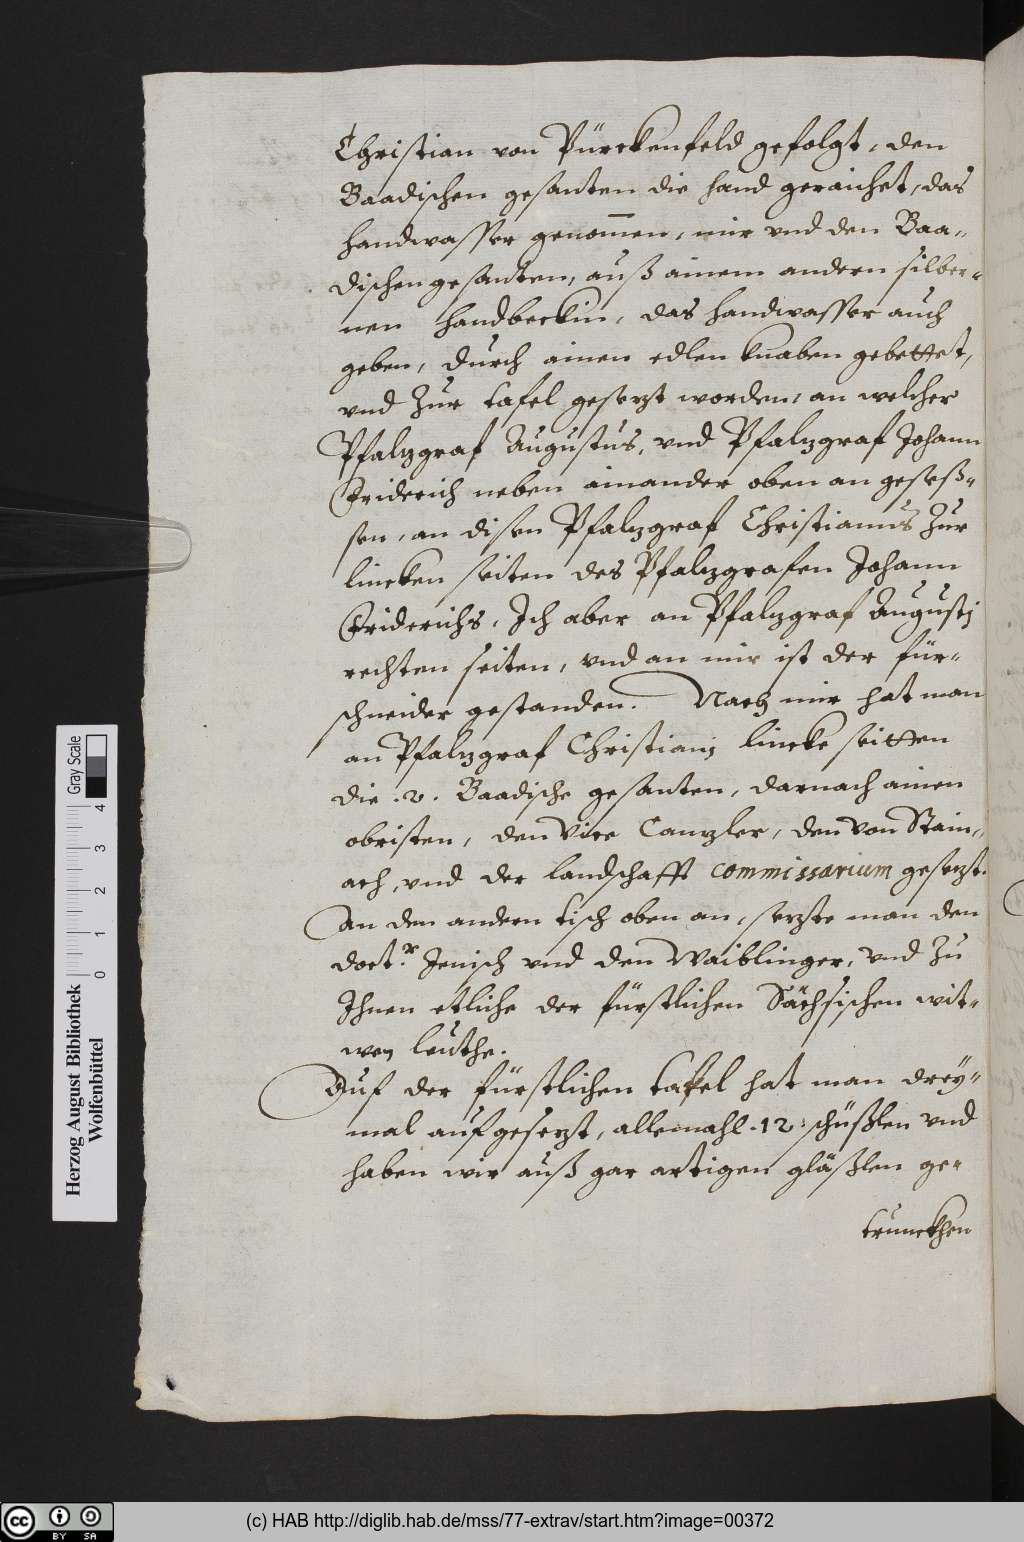 Christian von Pürckenfeld gefolgt, den
Baadischen gesanten die hand geraichet, das
handwasser genom̄en, mir vnd den Baa„
dischen gesanten, auß ainem andern silber„
nen handbeckin, das handwasser auch
geben, durch ainen edlen knaben gebettet,
vnd Zur tafel gesetzt worden, an welcher
Pfaltzgraf Augustus, vnd Pfaltzgraf Johann
Friderich neben ainander oben an geseß„
sen, an disen Pfaltzgraf Christianus Zur
lincken seiten des Pfaltzgrafen Johann
Friderichs, Ich aber an Pfaltzgraf Augustj
rechten seiten, vnd an mir ist der für„
schneider gestanden. Nach mir hat man
an Pfaltzgraf Christianj lincke seitten
die .2. Baadische gesanten, darnach ainen
obristen, den Vice Cantzler, den von Stain„
ach, vnd der landschafft commissarium gesetzt.
An den andern tisch oben an, setzte man den
doct.r Jenisch vnd den Waiblinger, vnd Zu
Ihnen etliche der fürstlichen Sächsischen wit„
wen leuthe.
Auf der fürstlichen tafel hat man drey„
mal aufgesetzt, allemahl .12. schüßlen vnd
haben wir auß gar artigen gläßlen ge„
trunckhen
Herzog August Bibliothek
Wolfenbüttel
0 1 2 3 4
Gray Scale
cc BY SA
(c) HAB http://diglib.hab.de/mss/77-extrav/start.htm?image=00372